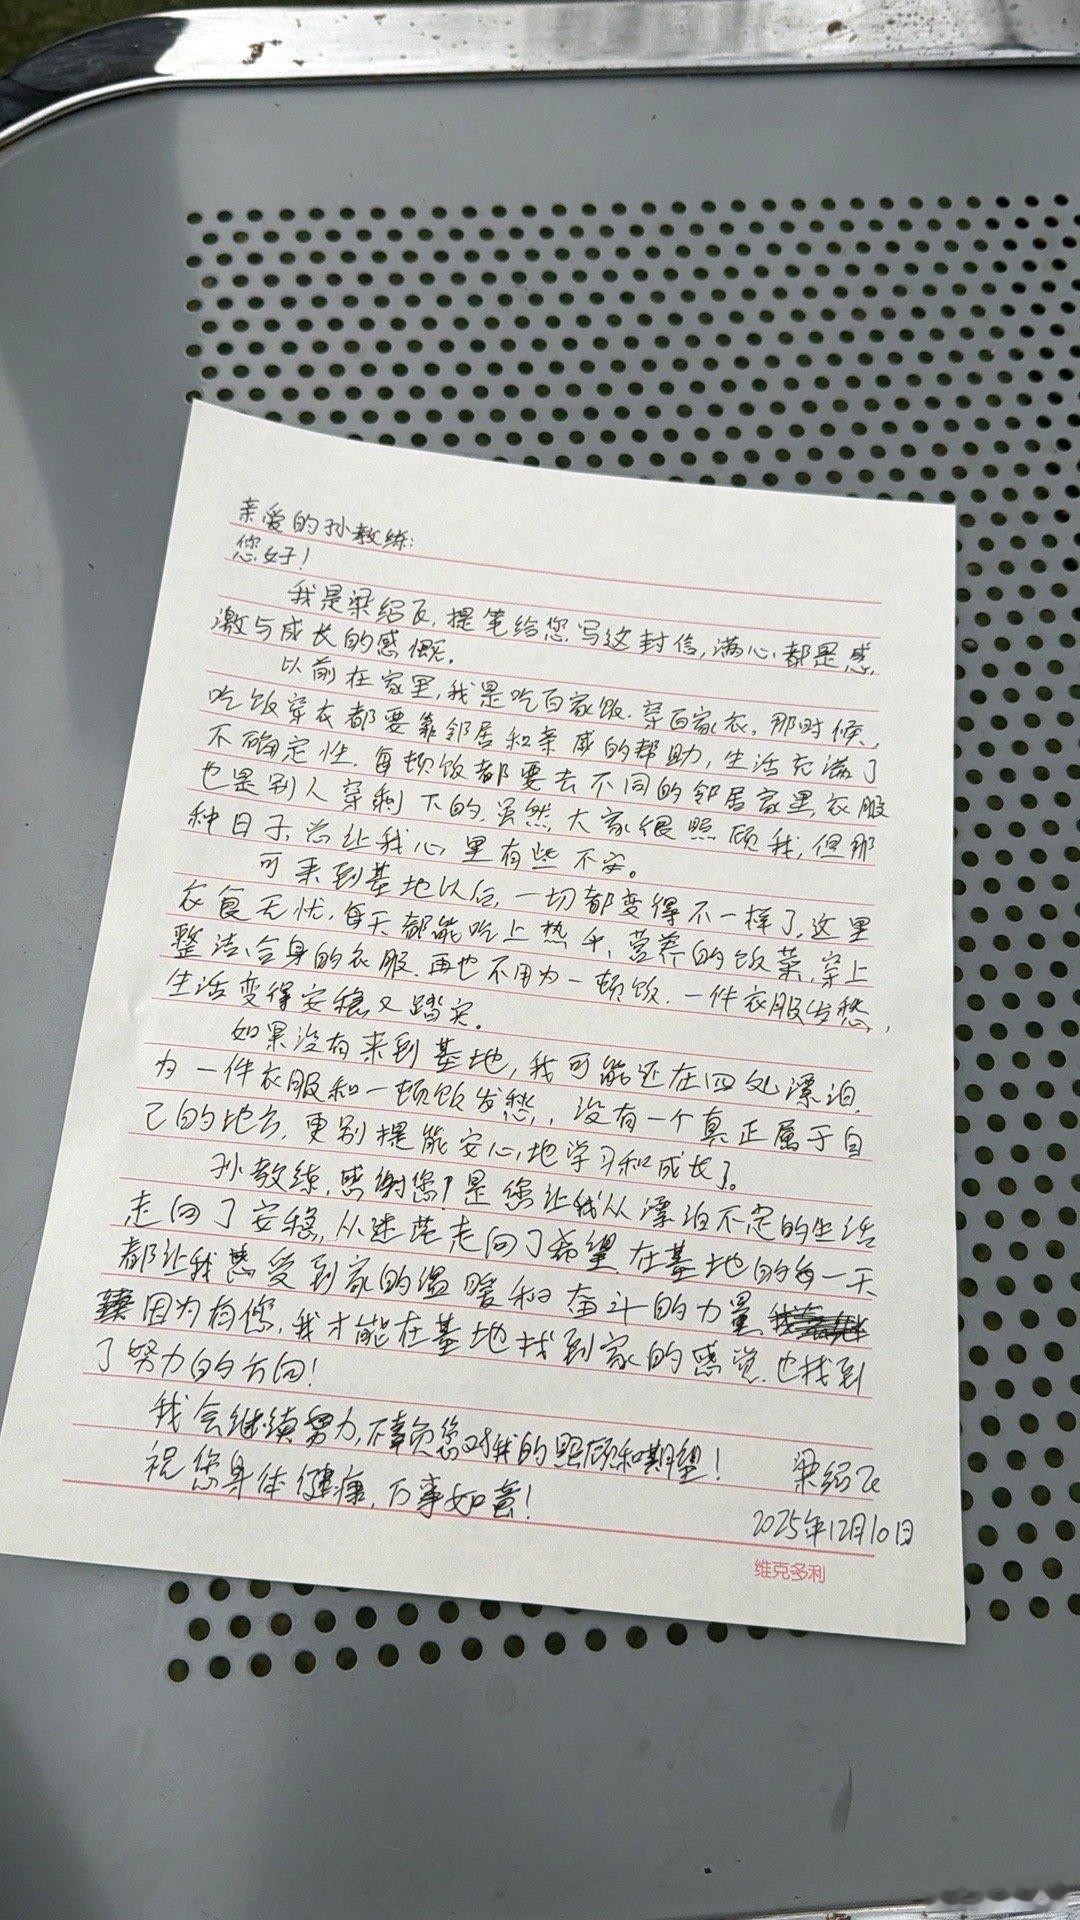 亲爱的孙教练:
您好!
我是梁绍瓦,提笔给您写这封信,满心都是感
激与成长的感慨。
以前在家里,我是吃百家饭.穿百家衣。那时候,
吃饭穿衣都要靠邻居和亲戚的帮助,生活充满了
不确定性.每顿饭都要去不同的邻居家里,衣服
也是别人穿剩下的.虽然大家很照顾我,但那
种日子总让我心里有些不安。
可来到基地以后,一切都变得不一样了,这里
衣食无忧,每天都能吃上热乎,营养的饭菜,穿上
整洁、合身的衣服.再也不用为一顿饭.一件衣服发愁,
生活变得安稳又踏实。
如果没有来到基地,我可能还在四处漂泊,
为一件衣服和一顿饭发愁,,没有一个真正属于自
己的地方.更别提能安心地学习和成长了。
孙教练,感谢您!是您让我从漂泊不定的生活
走向了安稳,从迷茫走向了希望.在基地的每一天
都让我感受到家的温暖和奋斗的力量
因为有您,我才能在基地找到家的感觉.也找到
了努力的方向!
我会继续努力,不辜负您对我的照顾和期望!
祝您身体健康,万事如意!
梁绍瓦
2025年12月10日
维克多利